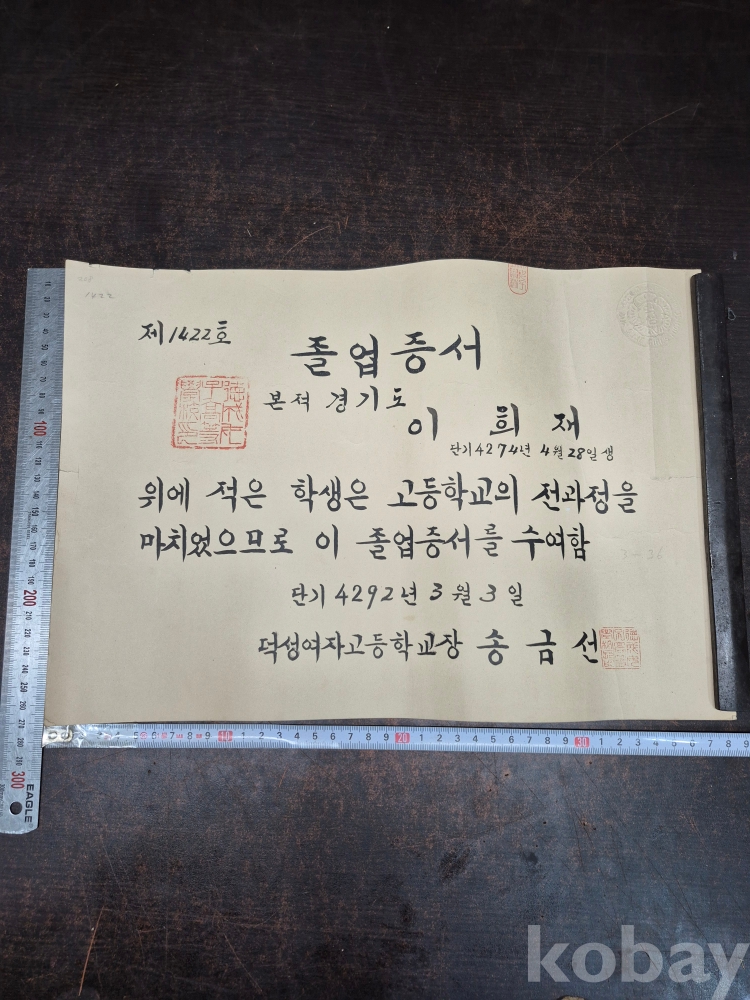 1422
제1422호
졸업증서
본적 경기도
이 희 재
단기4274년 4월 28일생
위에 적은 학생은 고등학교의 전과정을
마치었으므로 이 졸업증서를 수여함
단기 4292년 3월 3일
덕성여자고등학교장 송금선
EAGLE
kobay